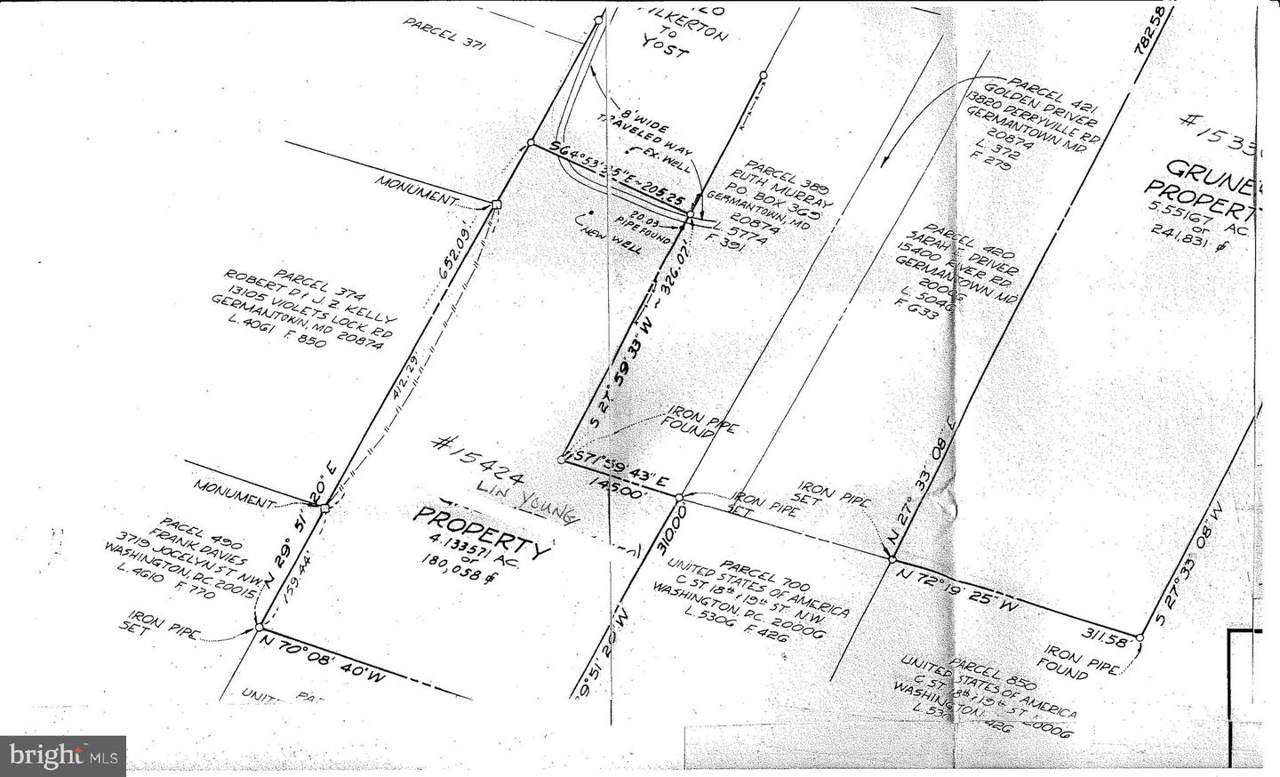 PARCEL 371
TO
YOST
782.58
PARCEL 421
GOLDEN DRIVER
13820 DERRYVILLE RD
GERMANTOWN MD.
20874
L. 372
F. 279
8' WIDE
TRAVELED WAY
EX. WELL
S64°53'25"E~205.25
20.03
PIPE FOUND
NEW WELL
PARCEL 389
RUTH MURRAY
PO. BOX 369
GERMANTOWN, MD
20874
L. 5774
F. 391
PROPERT
5.55167 AC.
or
241,831
MONUMENT
652.09'
PARCEL 374
ROBERT D & J. Z KELLY
13105 VIOLETS LOCK RD
GERMANTOWN, MD 20874
L. 4061 F. 850
412.29'
PARCEL 420
DRIVER
15400 RIVER RD
GERMANTOWN MD.
F. 633
S 27° 59' 33" W ~ 326.07'
IRON PIPE
FOUND
S71°59'43" E
145.00'
#15424
LIN YOUNG
PROPERTY
4.133571 AC.
or
180,058
IRON PIPE
SET
IRON PIPE
SET
N 27° 33' 08" E
MONUMENT
N 29° 51' 20" E
PACEL 490
FRANK DAVIES
3719 JOCELYN ST. N.W.
WASHINGTON, DC 20015
L. 4610 F. 770
159.44'
IRON PIPE
SET
N 70° 08' 40" W
310.00'
9°51' 20" W
PARCEL 700
UNITED STATES OF AMERICA
C ST 18th & 19th ST N.W.
WASHINGTON, DC. 20006
L. 5306 F. 426
N 72° 19' 25" W
311.58'
S 27° 33' 08" W
IRON PIPE
FOUND
PARCEL 850
UNITED STATES OF AMERICA
C ST
WASHINGTON
bright MLS